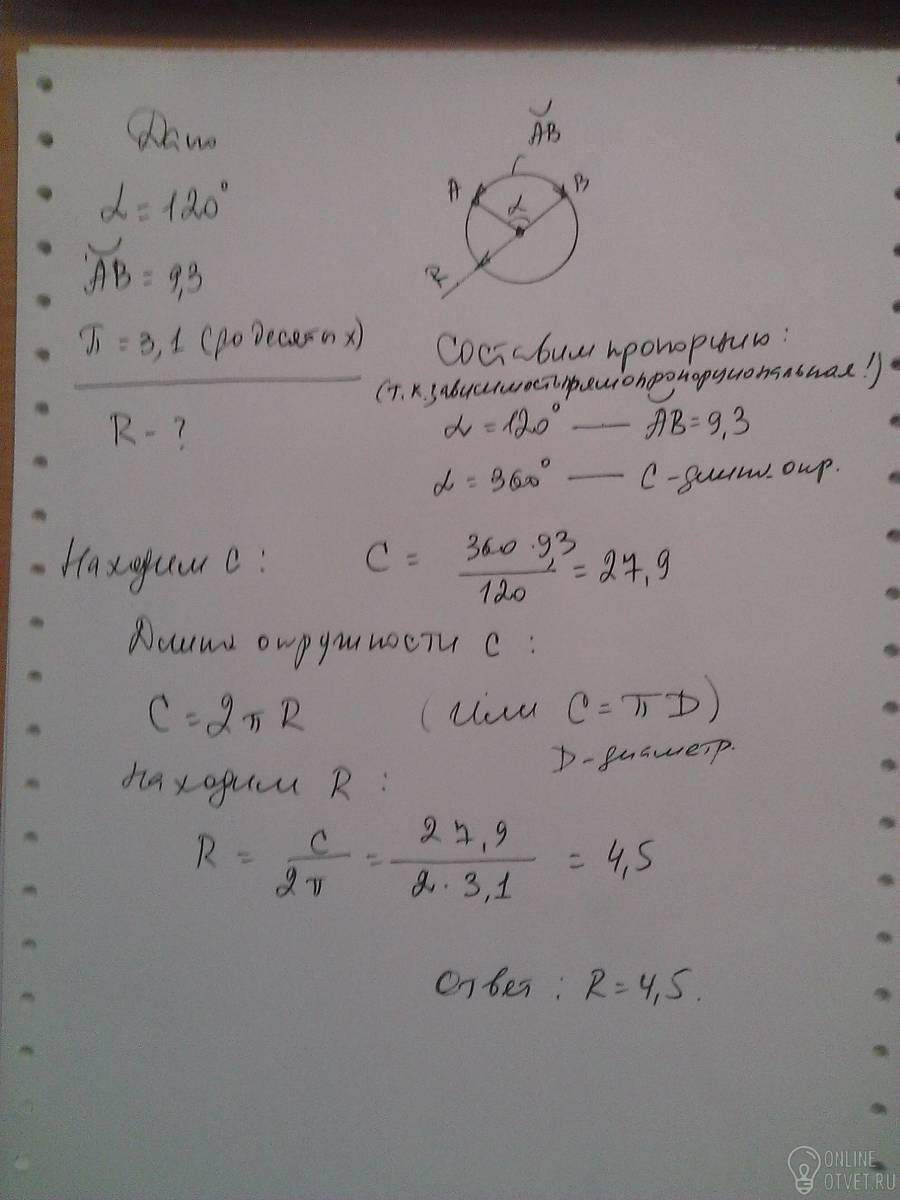 Дано
α = 120°
AB = 9,3
π = 3,1 (до десятых)
R - ?
AB
A
B
α
R
Составим пропорцию:
(т.к. зависимость прямопропорциональная!)
α = 120° — AB = 9,3
α = 360° — C - длина окр.
Находим C: C = 360 · 9,3 / 120 = 27,9
Длина окружности C:
C = 2πR (или C = πD)
D - диаметр.
Находим R:
R = C / 2π = 27,9 / 2 · 3,1 = 4,5
Ответ: R = 4,5.
ONLINE
OTVET.RU